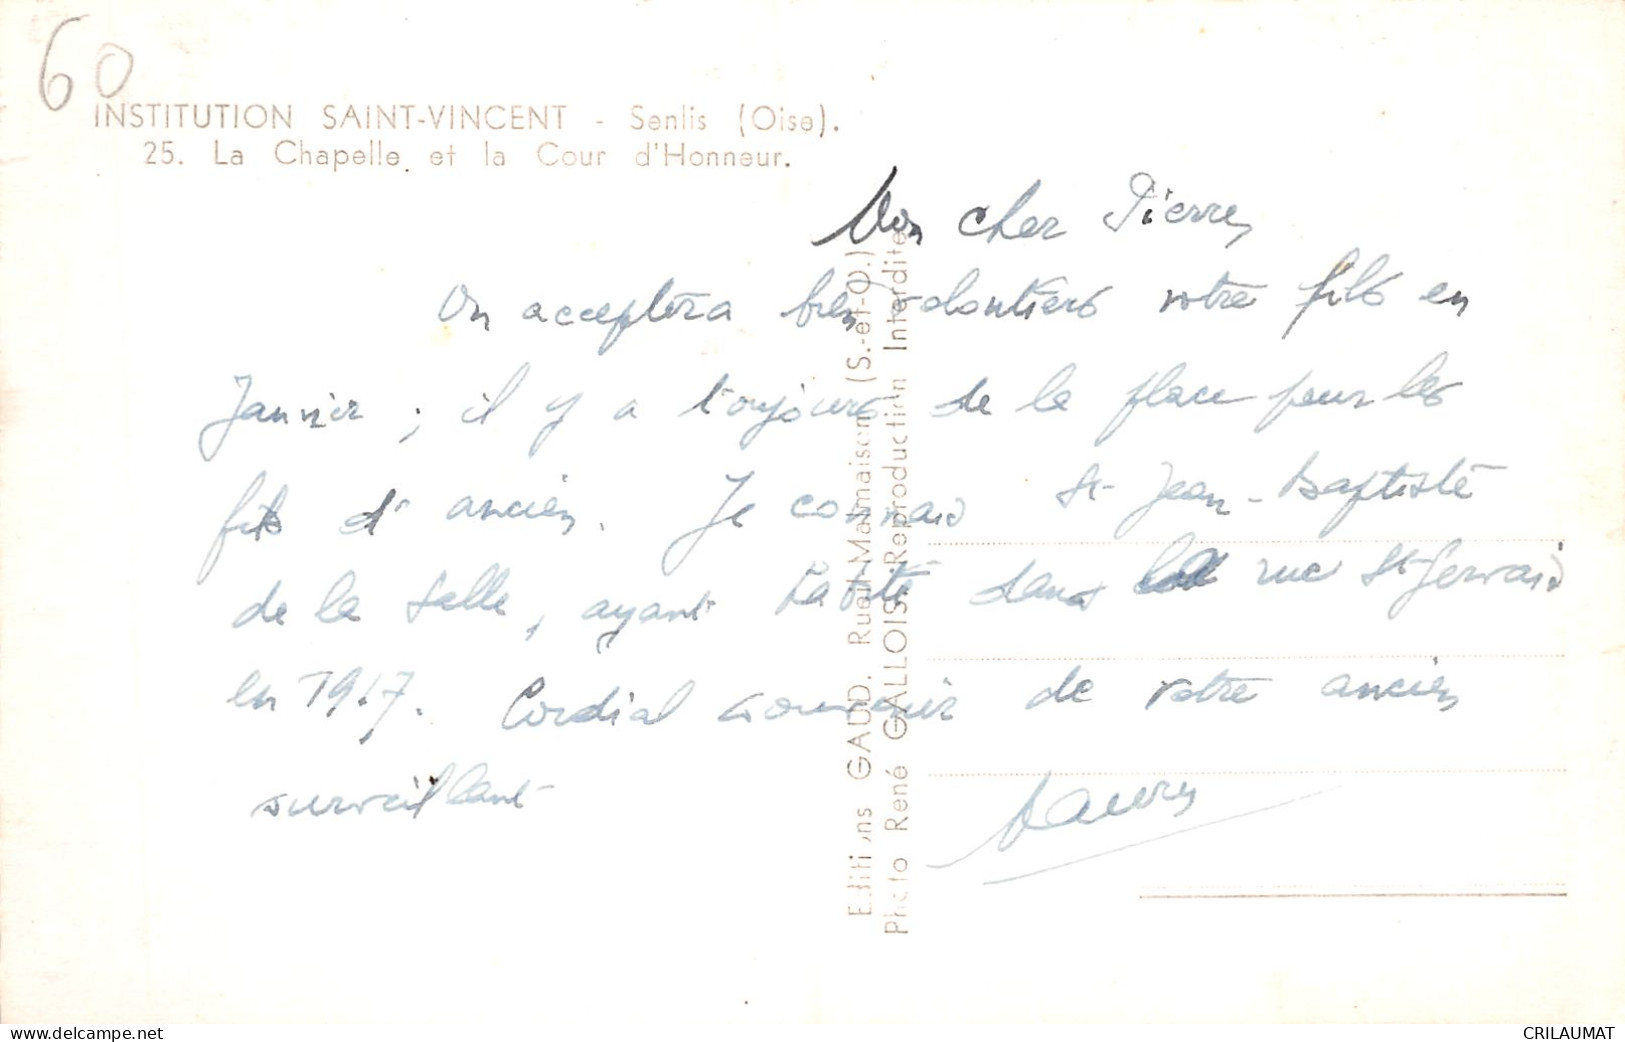 60
INSTITUTION SAINT-VINCENT - Senlis (Oise).
25. La Chapelle et la Cour d'Honneur.
Mon cher Pierre,
On acceptera bien volontiers votre fils en
Janvier ; il y a toujours de la place pour les
fils d'ancien. Je connais St-Jean-Baptiste
de la Salle, ayant habité dans la rue St-Gervais
en 1917. Cordial souvenir de votre ancien
surveillant
Editions GAUD. Rueil-Malmaison (S.-et-O.)
Photo René GALLOIS. Reproduction Interdite
www.delcampe.net
CRILAUMAT